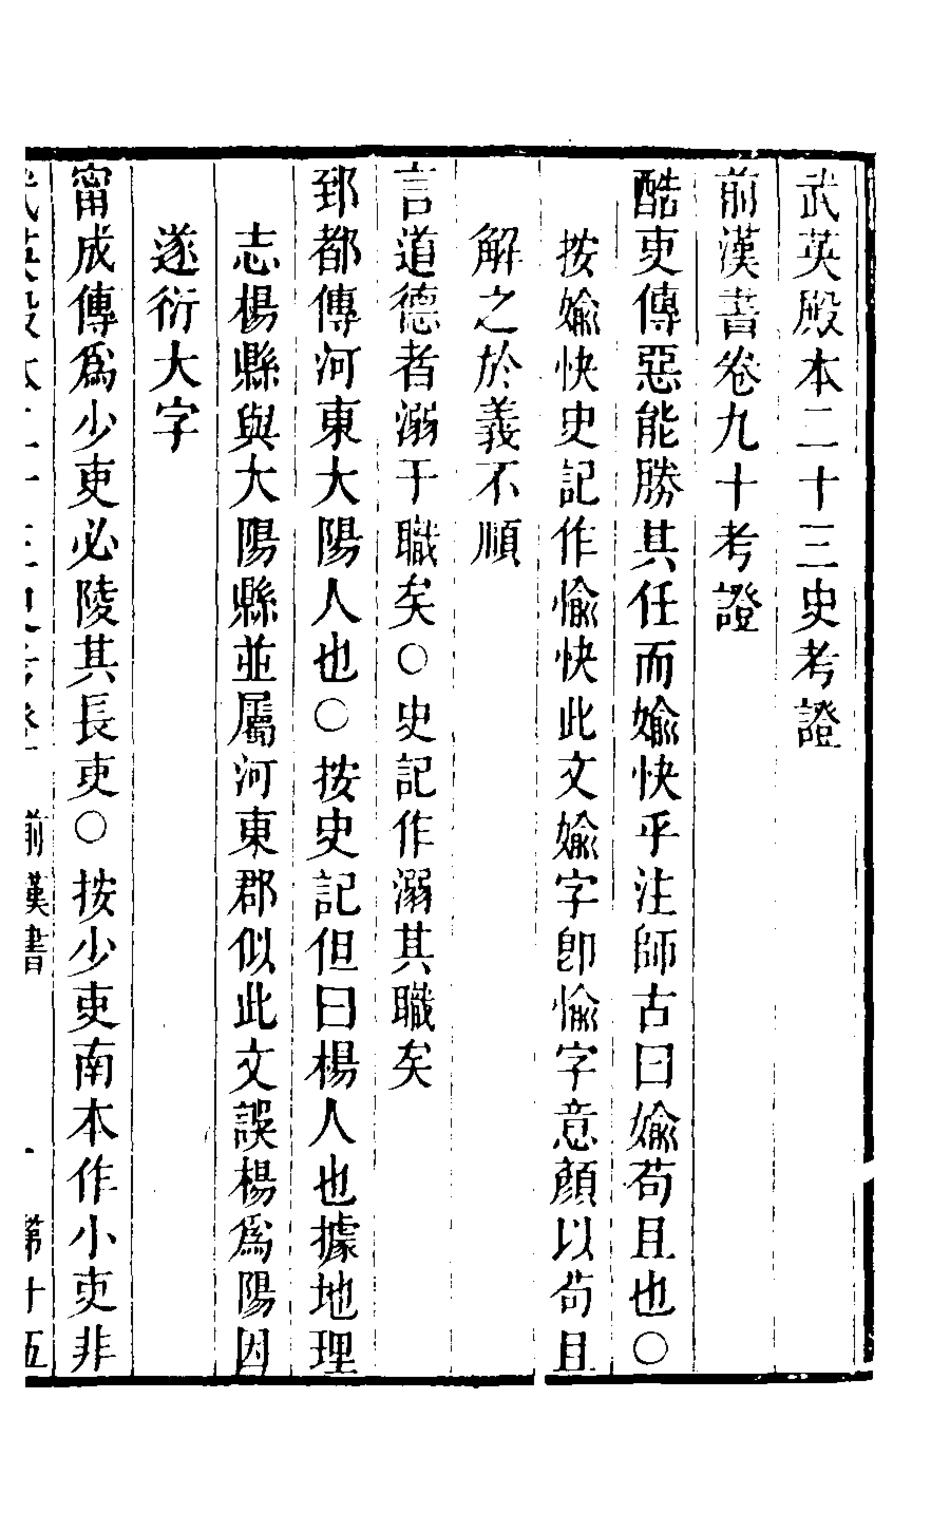 武英殿本二十三史考證
前漢書卷九十考證
酷吏傳惡能勝其任而媮快乎注師古曰媮苟且也○
按媮快史記作愉快此文媮字卽愉字意顏以苟且
解之於義不順
言道德者溺于職矣○史記作溺其職矣
郅都傳河東大陽人也○按史記但曰楊人也據地理
志楊縣與大陽縣並屬河東郡似此文誤楊爲陽因
遂衍大字
甯成傳爲少吏必陵其長吏○按少吏南本作小吏非
武英殿本二十三史考證 前漢書 第十五